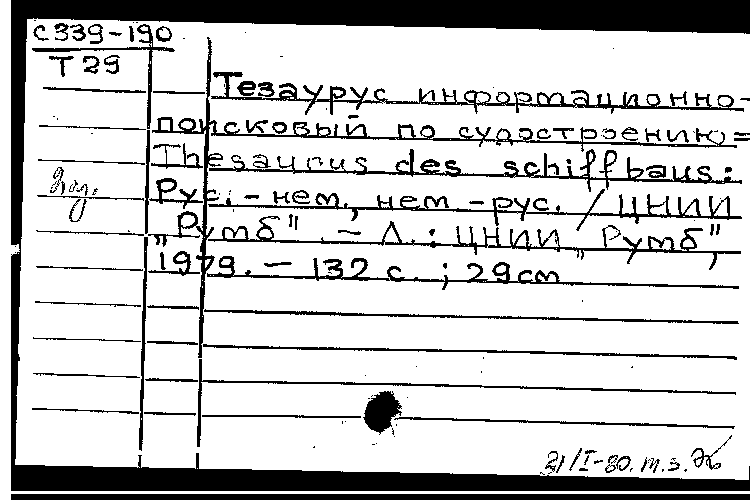 С339-190
Т29
Тезаурус информационно-
поисковый по судостроению=
Thesaurus des schiffbaus:
Рус.-нем., нем-рус. / ЦНИИ
„Румб". - Л.: ЦНИИ „Румб",
1979. - 132 с. ; 29cm
21/I-80. т.з.